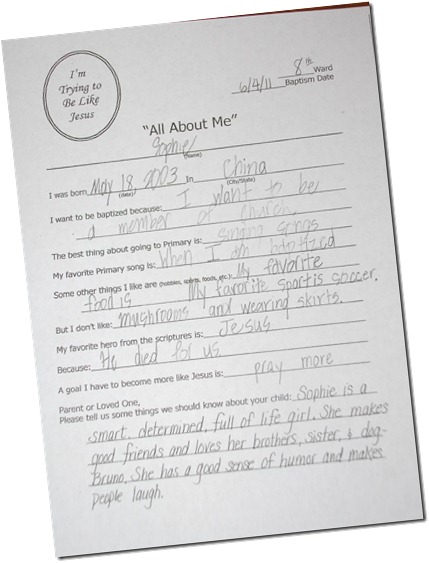 I'm
Trying to
Be Like
Jesus
8th Ward
6/4/11 Baptism Date
"All About Me"
Sophie
(Name)
I was born May 18, 2003 in China
(date) (City/State)
I want to be baptized because: I want to be
a member of church.
The best thing about going to Primary is: singing songs
My favorite Primary song is: When I am baptized
Some other things I like are (hobbies, sports, foods, etc.): My favorite
food is My favorite sport is soccer.
But I don't like: mushrooms and wearing skirts.
My favorite hero from the scriptures is: Jesus
Because: He died for us
A goal I have to become more like Jesus is: pray more
Parent or Loved One,
Please tell us some things we should know about your child: Sophie is a
smart, determined, full of life girl. She makes
good friends and loves her brothers, sister, & dog-
Bruno. She has a good sense of humor and makes
people laugh.